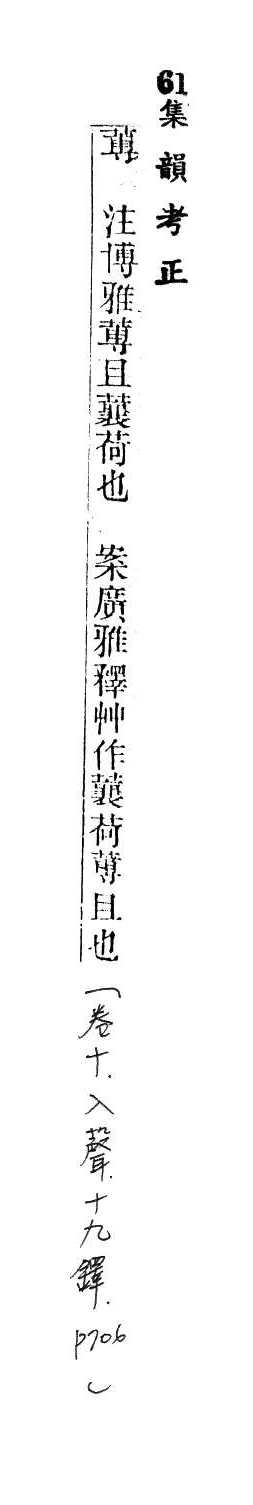 61集韻考正
蒪 注博雅蒪且蘘荷也 案廣雅釋艸作蘘荷蒪且也(卷十.入聲.十九鐸.p706)